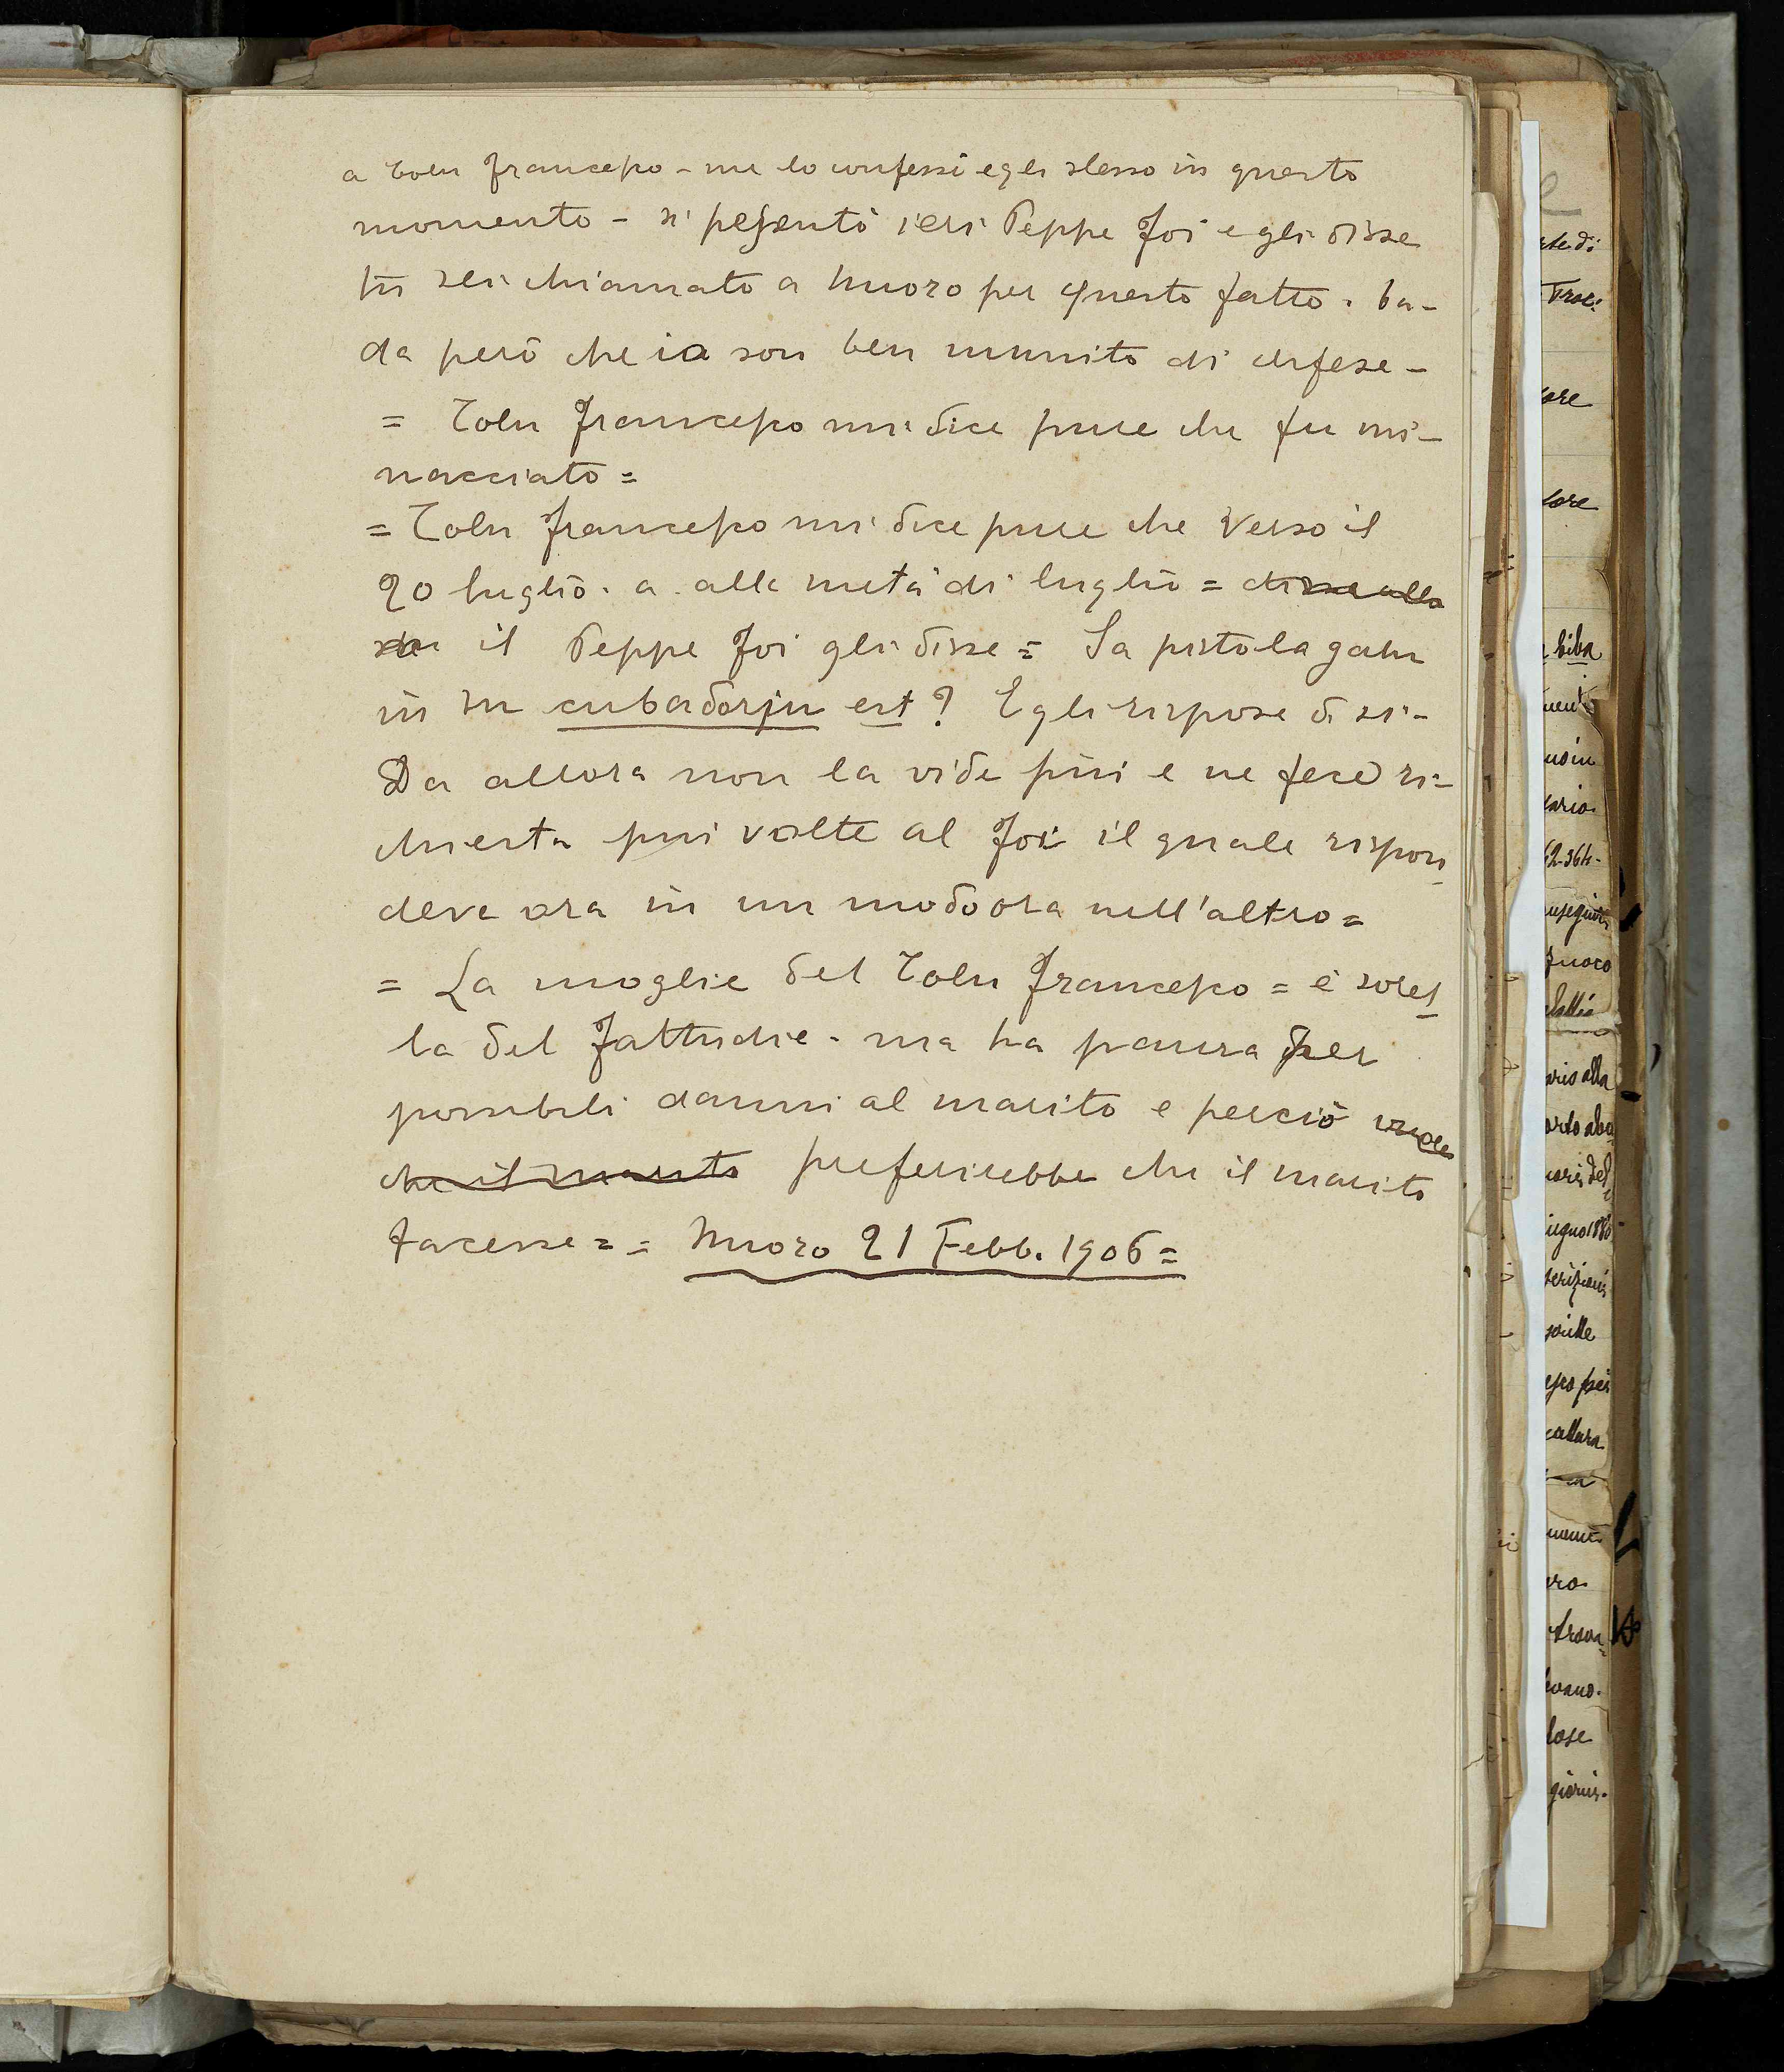 a Tolu Francesco - me lo confessò egli stesso in questo
momento - si pesentò ieri Peppe Foi e gli disse
tu sei chiamato a Nuoro per questo fatto. ba-
da però che io son ben munito di difese -
= Tolu Francesco mi dice pure che fu mi-
nacciato =
= Tolu Francesco mi dice pure che verso il
20 luglio. o. alla metà di luglio = disse alla
il Peppe Foi gli disse = Sa pistola galu
in su cubadorju est? Egli rispose di si -
Da allora non la vide più e ne fece ri-
chiesta più volte al Foi il quale rispon
deva ora in un modo ora nell'altro =
= La moglie del Tolu Francesco = è sorel
la del Fattudie - ma ha paura per
possibili danni al marito e perciò vuole
che il marito preferirebbe che il marito
tacesse = = Nuoro 21 Febb. 1906 =
rte di
core
tore
biba
62-364-
fuoco
ario alla
iugno 1880
giorni.